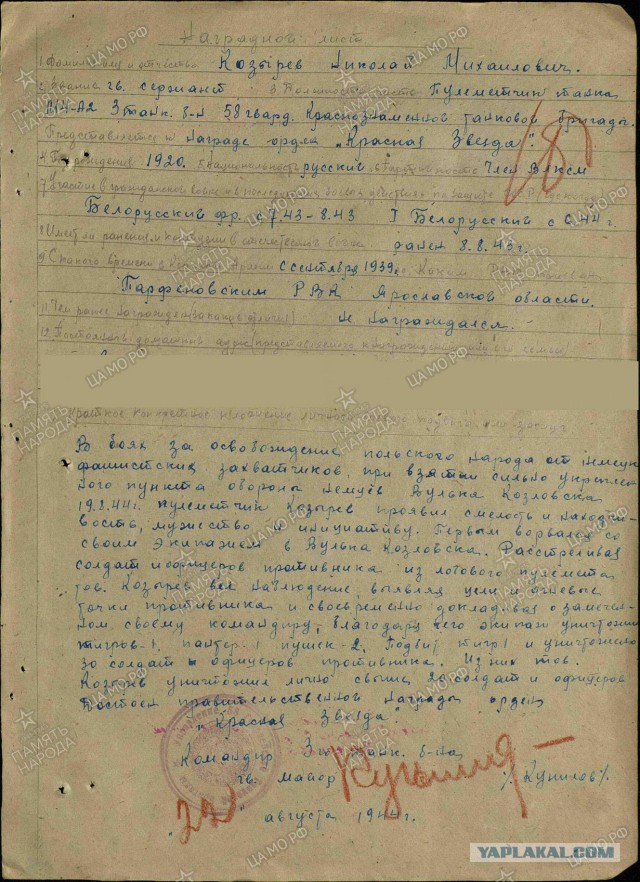 Наградной лист
1 Фамилия, имя и отчество Козырев Николай Михайлович.
2 Звание гв. сержант 3 Должность, часть Пулеметчик танка
М4-А2 3 танк. б-н 58 гвард. Краснознаменной танковой бригады.
Представляется к награде орден "Красная Звезда".
4 Год рождения 1920. 5 национальность русский 6 Партийность Член ВЛКСМ
7 Участие в гражданской войне и последующих боевых действиях по защите СССР
Белорусский фр. с 7.43-8.43 I Белорусский с 6.44 г.
8 Имеет ли ранения и контузии в отечественной войне ранен 8.8.43 г.
9 С какого времени в Красной Армии с сентября 1939 г. 10 Каким РВК призван
Парфеновским РВК Ярославской области.
11 Чем ранее награжден (за какие отличия) Не награждался.
12 Постоянный домашний адрес представляемого к награждению и адрес его семьи
Краткое конкретное изложение личного боевого подвига или заслуг
В боях за освобождение польского народа от немецк
фашистских захватчиков, при взятии сильно укреплен
ного пункта обороны немцев Вулька Козловска
19.8.44 г. пулеметчик Козырев проявил смелость и находчи-
вость, мужество и инициативу. Первым ворвался со
своим экипажем в Вулька Козловска. Расстреливая
солдат и офицеров противника из лобового пулемета
тов. Козырев вел наблюдение, выявляя цели и огневые
точки противника и своевременно докладывал о замечен-
ном, своему командиру, благодаря чего экипаж уничтожил
тигров-1, пантер-1 пушек-2, подбит тигр 1 и уничтожено
30 солдат и офицеров противника. Из них тов.
Козырев уничтожил лично свыше 20 солдат и офицеров
Достоен правительственной награды орден
"Красная Звезда".
Командир 3 танк. б-на
гв. майор /Кунилов/
"22" августа 1944 г.
ПАМЯТЬ НАРОДА
ЦАМО.РФ
YAPLAKAL.COM